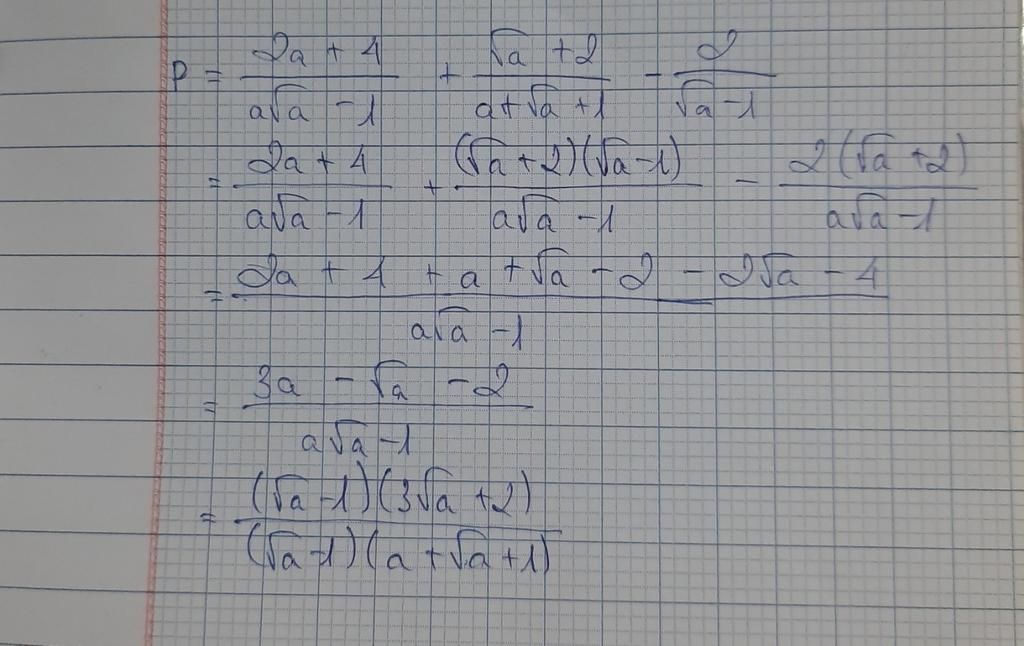 P = (2a + 4)/(a√a - 1) + (√a + 2)/(a + √a + 1) - 2/(√a - 1)
= (2a + 4)/(a√a - 1) + ((√a + 2)(√a - 1))/(a√a - 1) - (2(√a + 2))/(a√a - 1)
= (2a + 4 + a + √a - 2 - 2√a - 4)/(a√a - 1)
= (3a - √a - 2)/(a√a - 1)
= ((√a - 1)(3√a + 2))/((√a - 1)(a + √a + 1))